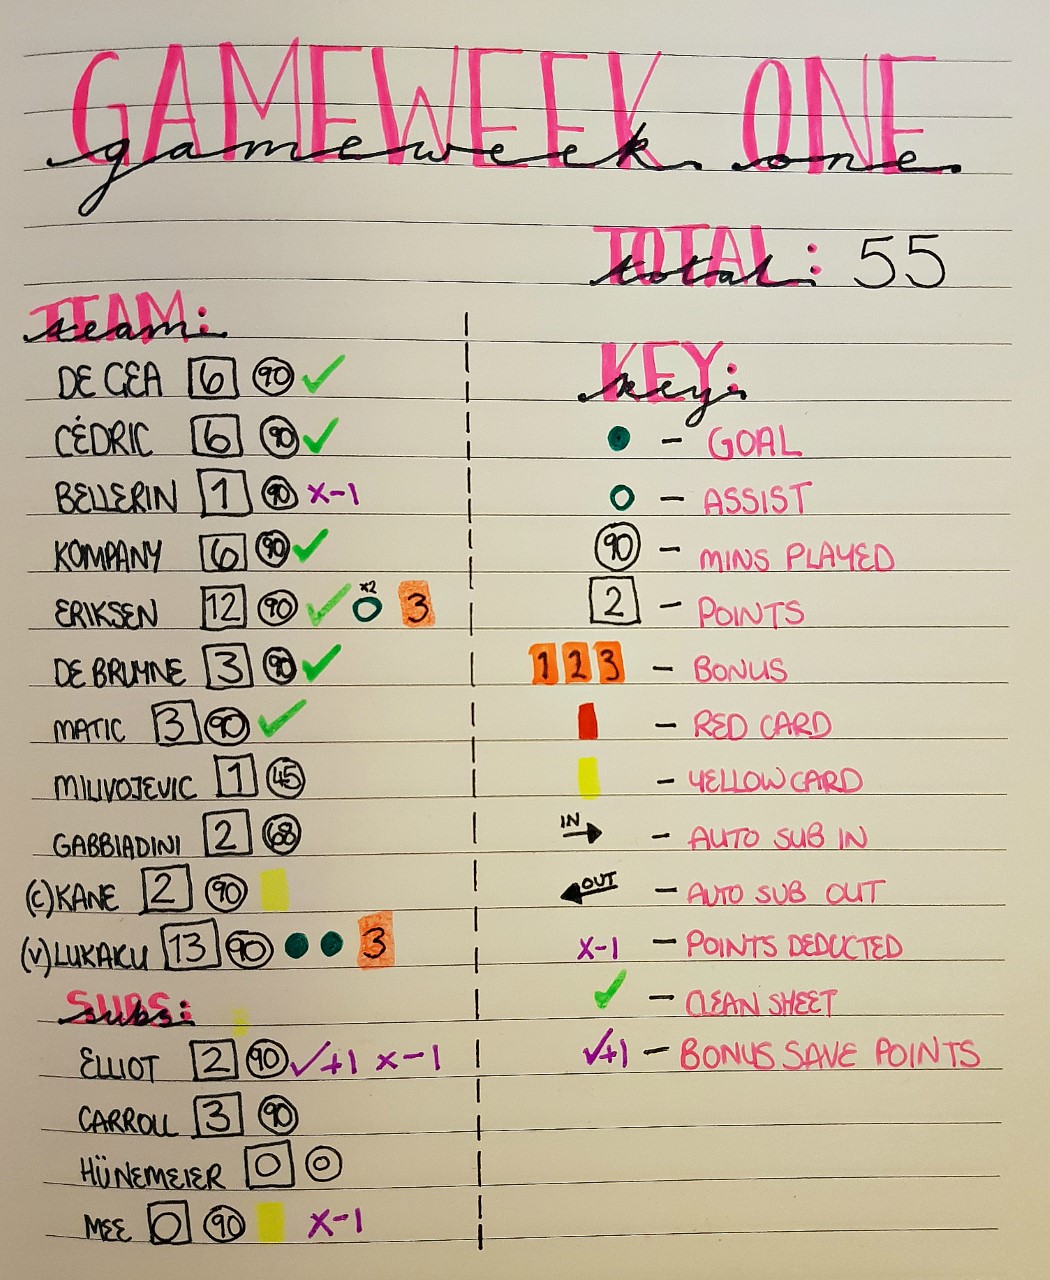 GAMEWEEK ONE
gameweek one
TOTAL: 55
total:
TEAM:
team:
DE GEA 6 90 ✓
CÉDRIC 6 90 ✓
BELLERIN 1 90 x-1
KOMPANY 6 90 ✓
ERIKSEN 12 90 ✓ x2 3
DE BRUYNE 3 90 ✓
MATIC 3 90 ✓
MILIVOJEVIC 1 45
GABBIADINI 2 68
(C) KANE 2 90
(V) LUKAKU 13 90 3
SUBS:
subs:
ELLIOT 2 90 ✓+1 x-1
CARROLL 3 90
HÜNEMEIER 0 0
MEE 0 90 x-1
KEY:
key:
- GOAL
- ASSIST
90 - MINS PLAYED
2 - POINTS
1 2 3 - BONUS
- RED CARD
- YELLOW CARD
IN → - AUTO SUB IN
← OUT - AUTO SUB OUT
x-1 - POINTS DEDUCTED
✓ - CLEAN SHEET
✓+1 - BONUS SAVE POINTS